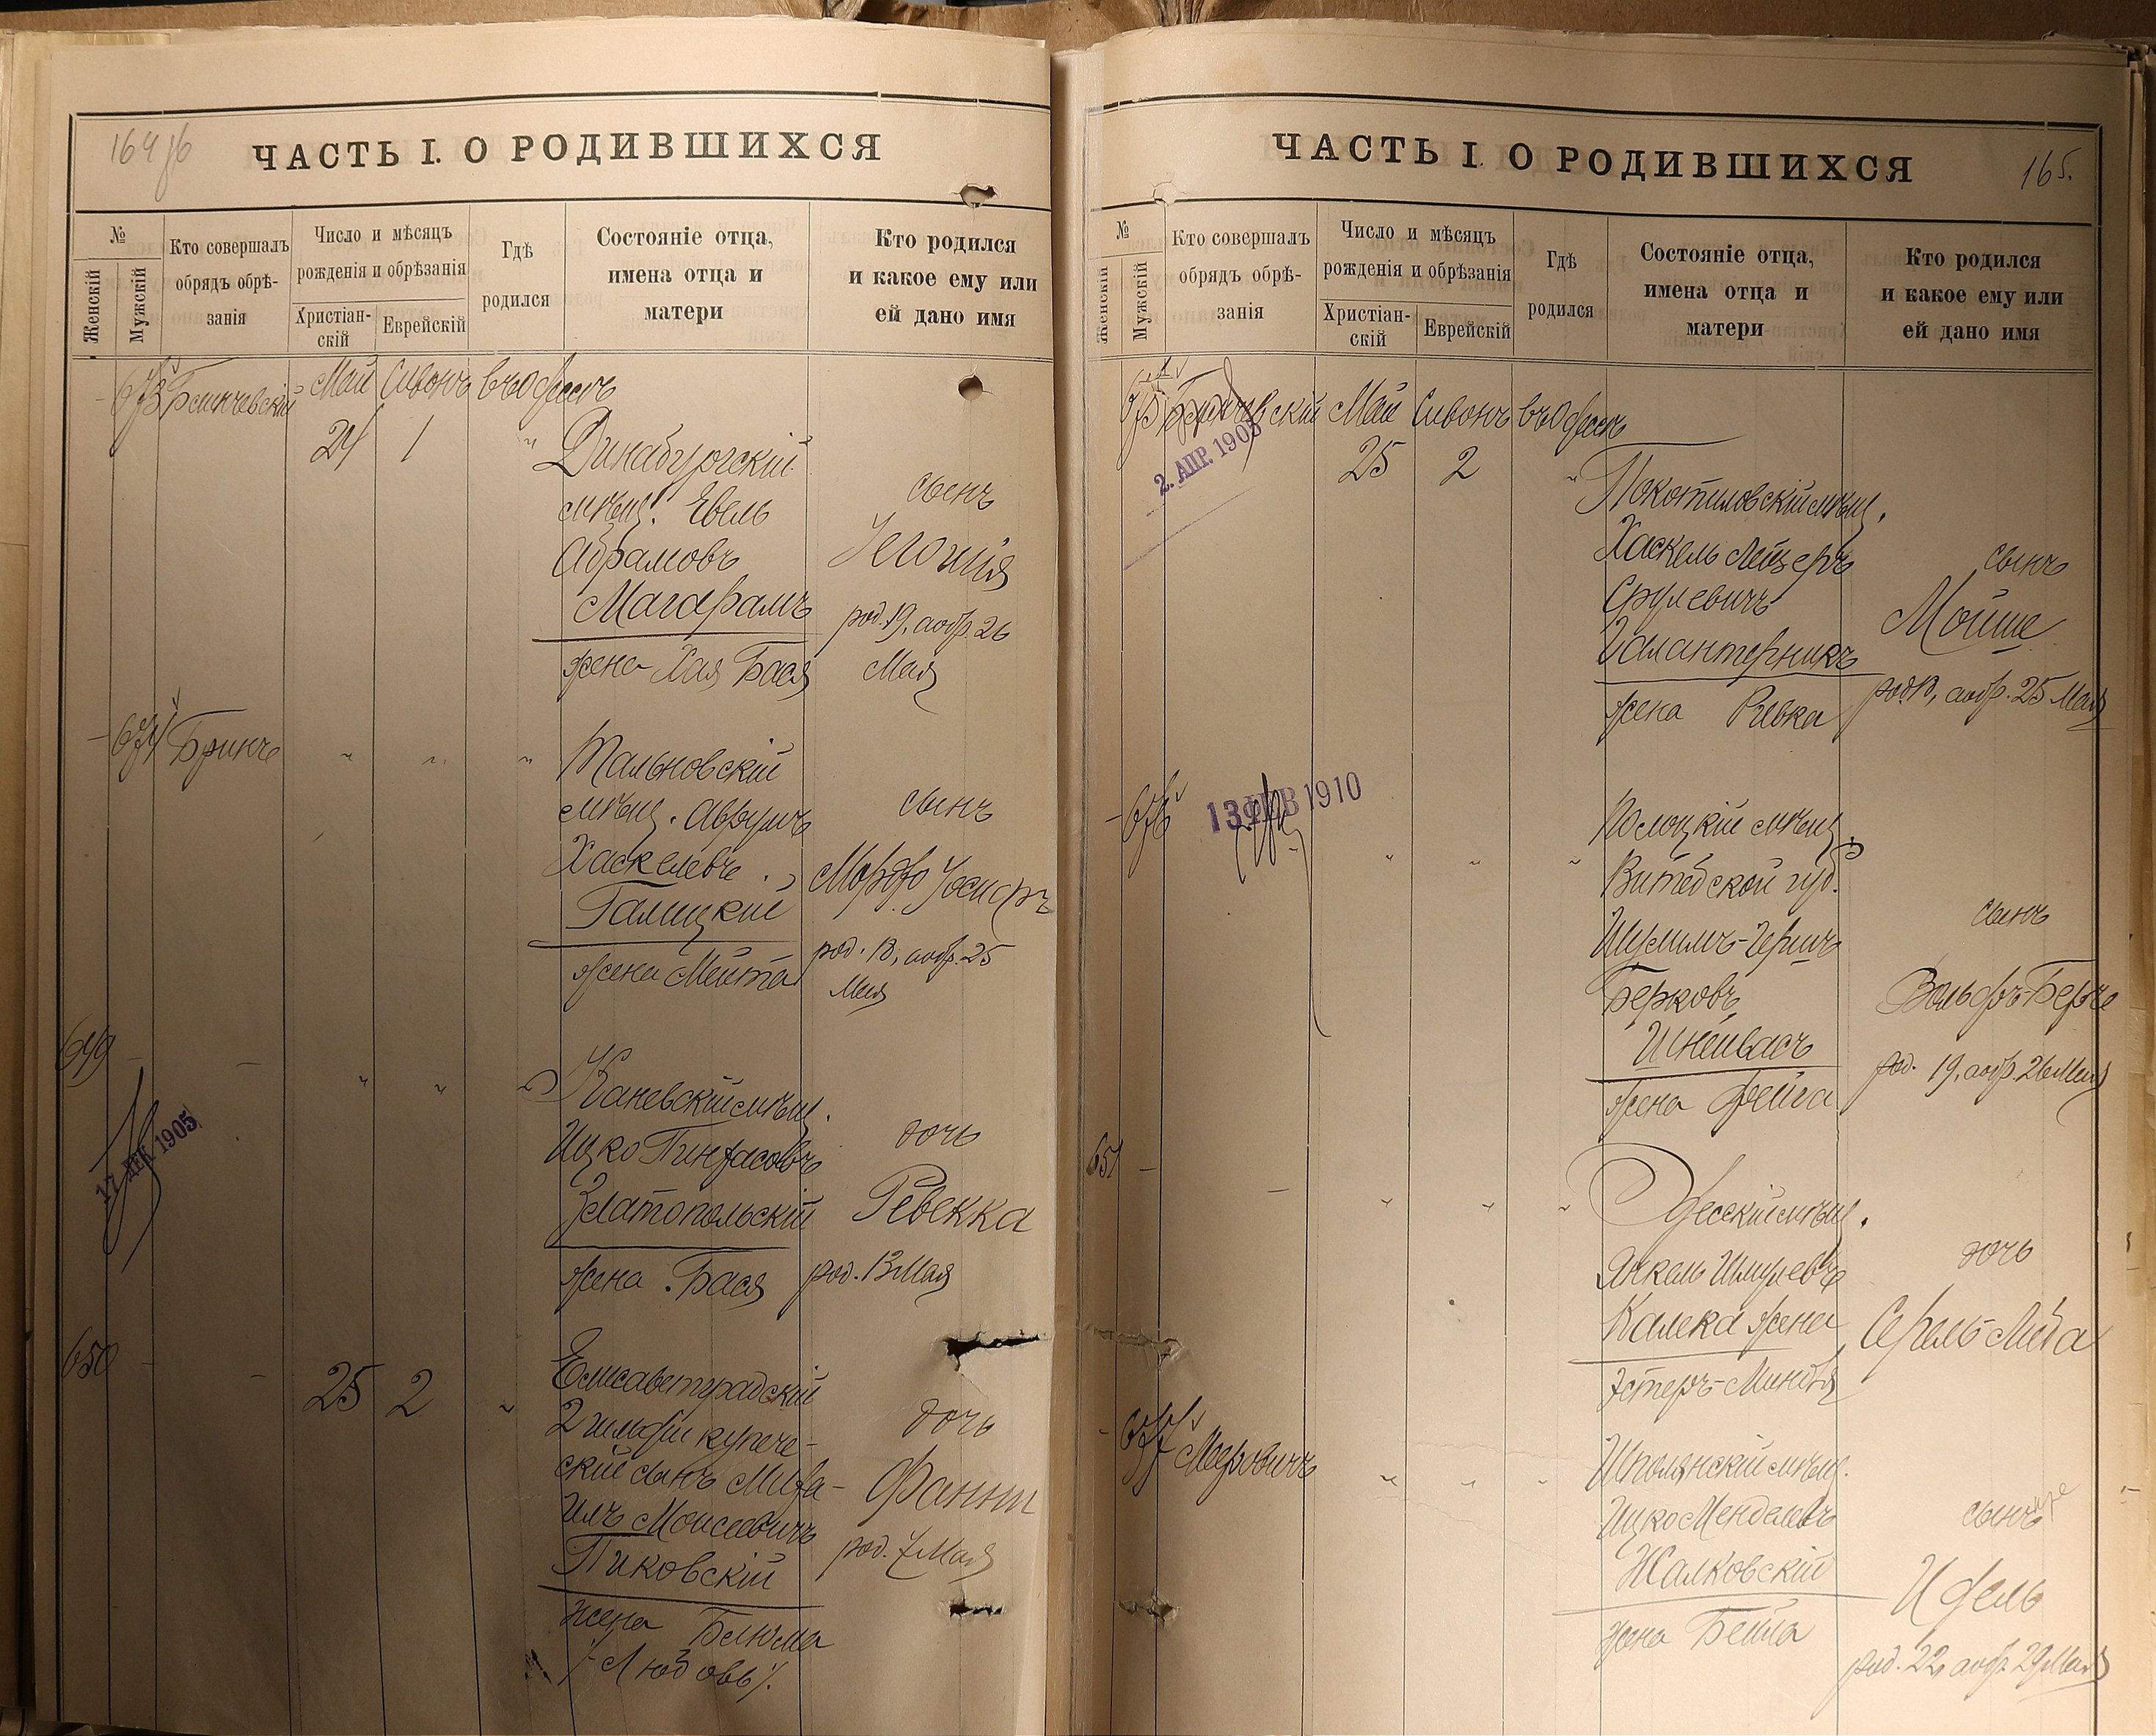 164 об
ЧАСТЬ I. О РОДИВШИХСЯ
№
Женскій
Мужскій
Кто совершалъ
обрядъ обрѣ-
занія
Число и мѣсяцъ
рожденія и обрѣзанія
Христіан-
скій
Еврейскій
Гдѣ
родился
Состояніе отца,
имена отца и
матери
Кто родился
и какое ему или
ей дано имя
673
Май Сивонъ въ Одессѣ
24 1 "
Динабургскій
мѣщ. Евель
Абрамовъ
Магарамъ
жена Хая Бася
сынъ
род. 19, аобр. 26
Мая
674 Бринъ " " "
Тальновскій
мѣщ. Аврумъ
Хаскелевъ
Галицкій
жена Мейта
сынъ
Мордко Іосифъ
род. 18, аобр. 25
Мая
649 - - " " "
17 ДЕК 1905
Каневскій мѣщ.
Ицко Пинхасовъ
Златопольскій
жена Бася
дочь
Ревекка
род. 13 Мая
650 - - 25 2 "
Елисаветградскій
2 гильдіи купече-
скій сынъ Миха-
илъ Моисеевичъ
Пиковскій
жена Блюма
/Любовь/.
дочь
Фанни
род. 7 Мая
ЧАСТЬ I. О РОДИВШИХСЯ
165.
№
Женскій
Мужскій
Кто совершалъ
обрядъ обрѣ-
занія
Число и мѣсяцъ
рожденія и обрѣзанія
Христіан-
скій
Еврейскій
Гдѣ
родился
Состояніе отца,
имена отца и
матери
Кто родился
и какое ему или
ей дано имя
675
Май Сивонъ въ Одессѣ
2. АПР. 1905
25 2 "
Покотиловскій мѣщ.
Хаскель Лейзеръ
Срулевичъ
Галантерникъ
жена Ривка
сынъ
Мойше
род. 18, аобр. 25 Мая
676
13 ФЕВ 1910
" " "
Полоцкій мѣщ.
Витебской губ.
Шулимъ-Гершъ
Берковъ
Шнейвасъ
жена Фейга
сынъ
Вольфъ-Беръ
род. 19, аобр. 26 Мая
651 - - " " "
Одесскій мѣщ.
Янкель Шмулевъ
Калека жена
Эстеръ-Миндля
дочь
677 Мееровичъ " " "
Шполянскій мѣщ.
Ицко Менделевъ
Жалковскій
жена Бейла
сынъ
Идель
род. 22, аобр. 29 Мая